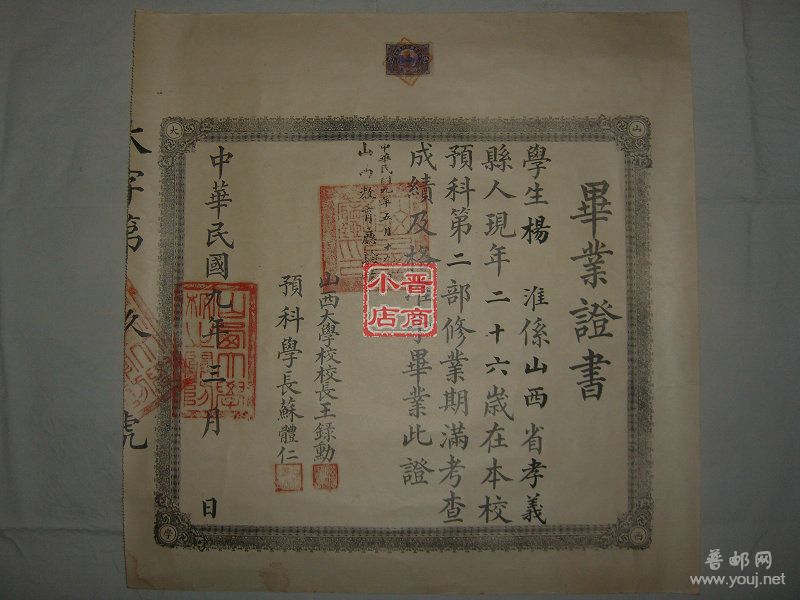 畢業證書
學生楊 淮係山西省孝義
縣人現年二十六歲在本校
預科第二部修業期滿考查
成績及格准予畢業此證
中華民國九年五月十
山西教育廳
山西大學校校長王錄勳
預科學長蘇體仁
中華民國九年三月 日
大字第 久 號
山
大
西
學
晋商
小店
普邮网
www.youj.net